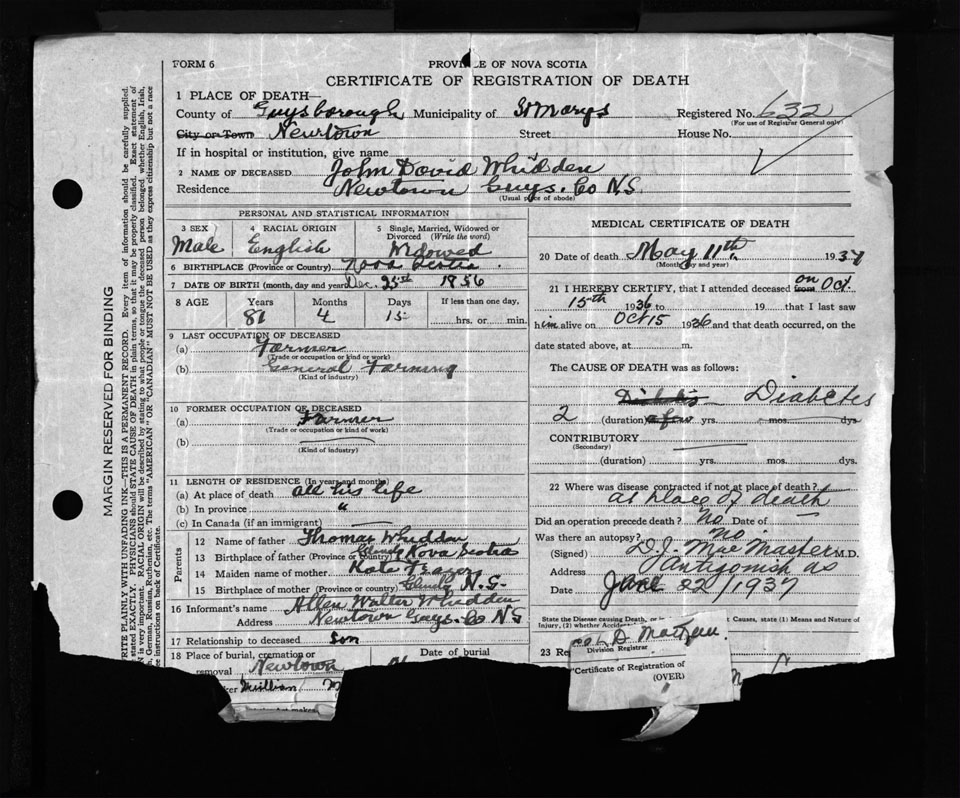 FORM 6
PROVINCE OF NOVA SCOTIA
CERTIFICATE OF REGISTRATION OF DEATH
1 PLACE OF DEATH—
County of Guysborough Municipality of St Marys Registered No. 632
(For use of Registrar General only)
City or Town Newtown Street House No.
If in hospital or institution, give name
2 NAME OF DECEASED John David Whidden
Residence Newtown Guys. Co N.S.
(Usual place of abode)
PERSONAL AND STATISTICAL INFORMATION
3 SEX 4 RACIAL ORIGIN 5 Single, Married, Widowed or Divorced (Write the word)
Male English Widowed
6 BIRTHPLACE (Province or Country) Nova Scotia
7 DATE OF BIRTH (month, day and year) Dec. 25th 1856
8 AGE Years Months Days If less than one day,
81 4 15 hrs. or min.
9 LAST OCCUPATION OF DECEASED
(a) Farmer
(Trade or occupation or kind of work)
(b) General Farming
(Kind of industry)
10 FORMER OCCUPATION OF DECEASED
(a) Farmer
(Trade or occupation or kind of work)
(b)
(Kind of industry)
11 LENGTH OF RESIDENCE (In years and months)
(a) At place of death all his life
(b) In province "
(c) In Canada (if an immigrant)
Parents
12 Name of father Thomas Whidden
13 Birthplace of father (Province or Country) Nova Scotia
14 Maiden name of mother Kate Frazer
15 Birthplace of mother (Province or Country) N.S.
16 Informant's name Allen Walter Whidden
Address Newtown Guys. Co NS
17 Relationship to deceased Son
18 Place of burial, cremation or removal Newtown
Date of burial
William M
MEDICAL CERTIFICATE OF DEATH
20 Date of death May 11th 1937
(Month, day and year)
21 I HEREBY CERTIFY, that I attended deceased from on Oct.
15th 1936 to 19 that I last saw
him alive on Oct 15 1936 and that death occurred, on the
date stated above, at m.
The CAUSE OF DEATH was as follows:
Diabetes
2 (duration) a few yrs. mos. dys
CONTRIBUTORY
(Secondary)
(duration) yrs. mos. dys.
22 Where was disease contracted if not at place of death?
at place of death
Did an operation precede death? No Date of
Was there an autopsy? No
(Signed) D.J. MacMaster M.D.
Address Antigonish
Date June 22/1937
State the Disease causing Death, or Causes, state (1) Means and Nature of
Injury, (2) whether
23
Division Registrar
"Certificate of Registration of
(OVER)
MARGIN RESERVED FOR BINDING
WRITE PLAINLY WITH UNFADING INK—THIS IS A PERMANENT RECORD. Every item of information should be carefully supplied.
stated EXACTLY. PHYSICIANS should STATE CAUSE OF DEATH in plain terms, so that it may be properly classified. Exact statement of
is very important. RACIAL ORIGIN will be described by stating to what people or tongue the deceased person belonged, whether English, Irish,
German, Russian, Ruthenian, etc. The terms "AMERICAN" OR "CANADIAN" MUST NOT BE USED as they express citizenship but not a race
instructions on back of Certificate.